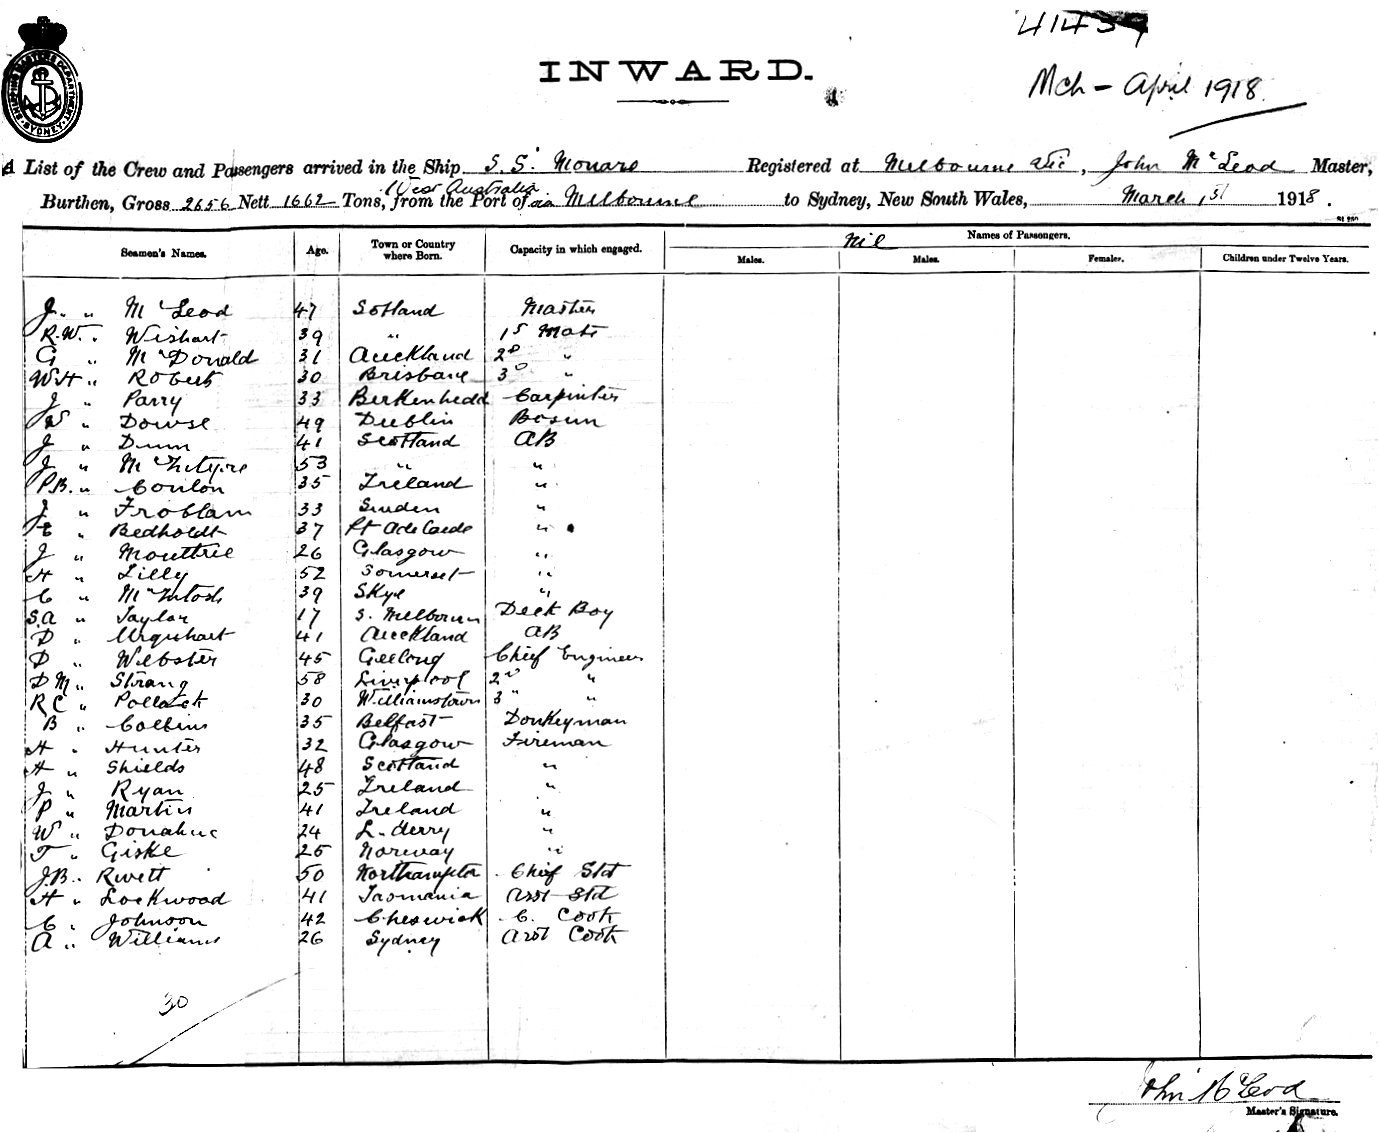 41439
INWARD.
Mch - April 1918
SHIPPING MASTERS DEPARTMENT SYDNEY
A List of the Crew and Passengers arrived in the Ship S.S. Monaro Registered at Melbourne Vic, John McLeod Master,
Burthen, Gross 2656 Nett 1662 Tons, from the Port of West Australia via Melbourne to Sydney, New South Wales, March 1st 1918.
Seamen's Names. Age. Town or Country where Born. Capacity in which engaged. Nil Names of Passengers.
Males. Males. Females. Children under Twelve Years.
J. " McLeod 47 Sotland Master
R.W. " Wishart 39 " 1st Mate
G " McDonald 31 Auckland 2D "
W.H " Roberts 30 Brisbane 3D "
J " Parry 33 Berkenhedd Carpinter
W " Dowse 49 Dublin Bosun
J " Dunn 41 Scotland AB
J " McIntyre 53 " "
P.B. " Conlon 35 Ireland "
J " Froblam 33 Sweden "
E " Bedholdt 37 Pt Adelaide "
J " Mouttrie 26 Glasgow "
H " Lilly 52 Somerset "
C " McIntosh 39 Skye "
S.A " Taylor 17 S. Melbourn Deck Boy
D " Urquhart 41 Auckland AB
D " Webster 45 Geelong Chief Engineer
D M " Strang 58 Liverpool 2D "
R C " Pollock 30 Williamstown 3 "
B " Collins 35 Belfast Donkeyman
H " Hunter 32 Glasgow Fireman
H " Shields 48 Scotland "
J " Ryan 25 Ireland "
P " Martin 41 Ireland "
W " Donahue 24 L. Derry "
T " Giske 25 Norway "
J.B. " Rivett 50 Northampton Chief Std
H " Lockwood 41 Tasmania Asst Std
C " Johnson 42 Cheswick C. Cook
A " Williams 26 Sydney Asst Cook
30
John McLeod
Master's Signature.